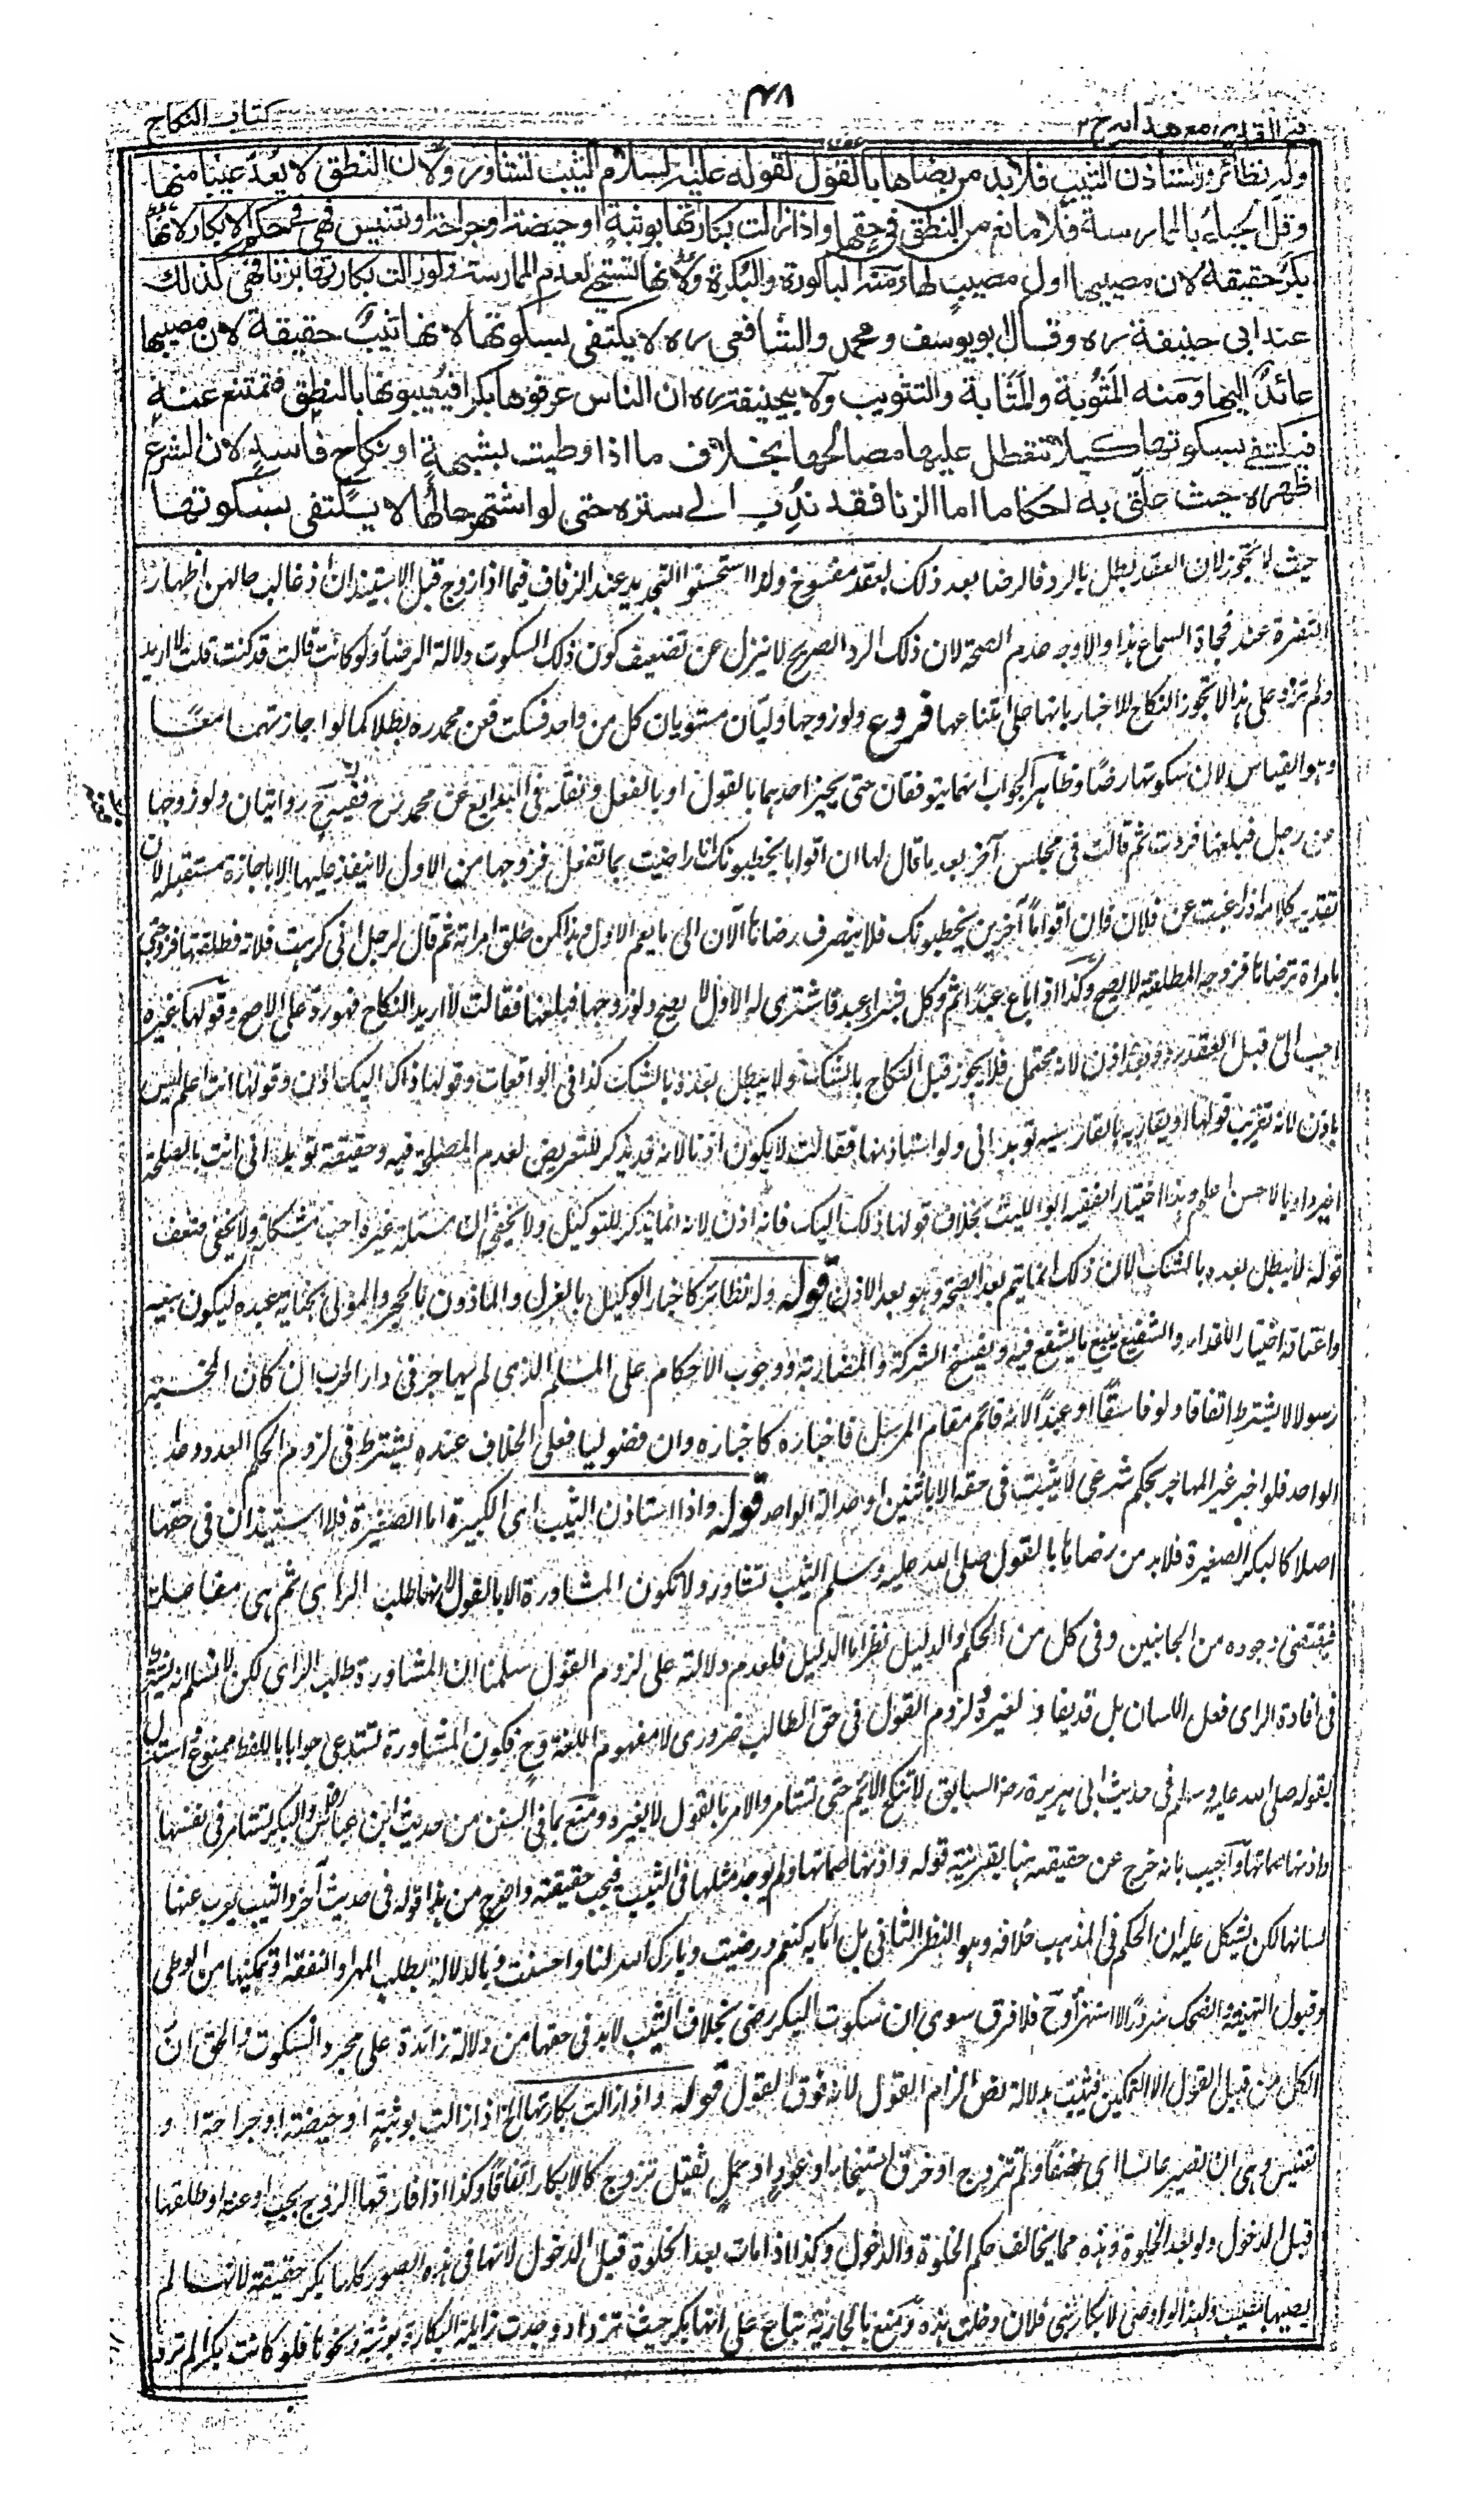 فتح القدير مع هداية ج ٢
٤٨
كتاب النكاح
وله نظائر ولو استأذن الثيب فلا بد من رضاها بالقول لقوله عليه السلام الثيب تشاور ولان النطق لا يعد عيبا منها
وقل الحياء بالممارسة فلا مانع من النطق في حقها واذا زالت بكارتها بوثبة او حيضة او جراحة او تعنيس فهي في حكم الابكار لانها
بكر حقيقة لان مصيبها اول مصيب لها ومنه الباكورة والبكرة ولانها تستحيي لعدم الممارسة ولو زالت بكارتها بزنا فهي كذلك
عند ابي حنيفة ره وقال ابو يوسف و محمد والشافعي ره لا يكتفى بسكوتها لانها ثيب حقيقة لان مصيبها
عائد اليها ومنه المثوبة والمثابة والتثويب ولابيحنيفة ره ان الناس عرفوها بكرا فيعيبونها بالنطق فتمتنع عنه
فيكتفى بسكوتها كيلا تتعطل عليها مصالحها بخلاف ما اذا وطيت بشبهة او نكاح فاسد لان الشرع
اظهره حيث علق به احكاما اما الزنا فقد ندب الى ستره حتى لو اشتهر حالها لا يكتفى بسكوتها
حيث لا تجوز لان العقد بطل بالرد فالرضا بعد ذلك بعقد مفسوخ ولذا استحسنوا التجديد عند الزفاف فيما اذا زوج قبل الاستيذان اذ غالب حالهن اظهار
النفرة عند فجأة السماع هذا والاوجه عدم الصحة لان ذلك الرد الصريح لا ينزل عن تضعيف كون ذلك السكوت دلالة الرضا ولو كانت قالت قد كنت قلت لا اريد
ولم تزد على هذا لا تجوز النكاح للاخبار بانها على امتناعها فروع ولو زوجها وليان مستويان كل من واحد فسكتت فعن محمد ره بطلا كما لو اجازتهما معا
وهو القياس لان سكوتها رضا وظاهر الجواب انهما يتوقفان حتى يجيز احدهما بالقول او بالفعل ونقله في البدايع عن محمد رح ففيه ح روايتان ولو زوجها
من رجل فبلغها فردت ثم قالت في مجلس آخر بعد ما قال لها ان اقواما يخطبونك انا راضيت بما تفعل فزوجها من الاول لا ينفذ عليها الا باجازة مستقبلة لان
تقدير كلامه اذا رغبت عن فلان فان اقواما آخرين يخطبونك فلا ينصرف رضاها الآن الى ما يعم الاول وهذا كمن طلق امرأته ثم قال لرجل اني كرهت فلانة فطلقتها فزوجني
بامراة ترضاها فزوجه المطلقة لا يصح وكذا اذا باع عبدا ثم وكل بشراء عبد فاشترى له الاول لا يصح ولو زوجها فبلغها فقالت لا اريد النكاح فهو رد على الاصح وقولها غيره
احب الي قبل العقد رد وبعده اذن لانه محتمل فلا يجوز قبل النكاح بالشك ولا يبطل بعده بالشك كذا في الواقعات وقولها ذاك اليك اذن وقولها انت اعلم ليس
باذن لانه تقريب قولها او يقاربه بالفارسية تو به داني ولو استأذنها فقالت لا يكون اذنا لانه قد يذكر للتعريض لعدم المصلحة فيه وحقيقة تو به داني انت بالمصلحة
اخبر او بالاحسن اعلم وهذا اختيار الفقيه ابو الليث بخلاف قولها ذلك اليك فانه اذن لانه انما يذكر للتوكيل ولا يخفى ان مسئلة غيره احب مشكلة ولا يخفى ضعف
قوله لا يبطل بعده بالشك لان ذلك انما يتم بعد الصحة وهو بعد الاذن قوله وله نظائر كاخبار الوكيل بالعزل والماذون بالحجر والمولى بجناية عبده ليكون بيعه
واعتاقه اختيار الفداء والشفيع ببيع ما يشفع فيه وبفسخ الشركة والمضاربة ووجوب الاحكام على المسلم الذي لم يهاجر في دار الحرب ان كان المخبر
رسولا لا يشترط اتفاقا ولو فاسقا او عبدا لانه قائم مقام المرسل فاخباره كاخباره وان فضوليا فعلى الخلاف عنده يشترط في لزوم الحكم العدد وعدالة
الواحد فلو اخبر غير المهاجر بحكم شرعي لا يثبت في حقه الا باثنين او عدالة الواحد قوله واذا استاذن الثيب اي الكبيرة اما الصغيرة فلا استيذان في حقها
اصلا كالبكر الصغيرة فلابد من رضاها بالقول صلى الله عليه وسلم الثيب تشاور ولا تكون المشاورة الا بالقول لانها طلب الراى ثم هي مفاعلة
فيقتضي وجوده من الجانبين وفي كل من الحكم والدليل نظر اما الدليل فلعدم دلالته على لزوم القول سلمنا ان المشاورة طلب الراى لكن لا نسلم انه يستدعي
في افادة الراى فعل اللسان بل قد يفاد بغيره ولزوم القول في حق الطالب ضروري لا مفهوم اللغة وح فكون المشاورة تستدعي جوابا باللفظ ممنوع واستدل
بقوله صلى الله عليه وسلم في حديث ابي هريرة رضـ السابق لا تنكح الايم حتى تستامر والامر بالقول لا بغيره ومنع بما في السنن من حديث ابن عباس رضـ والبكر تستامر في نفسها
واذنها صماتها واجيب بانه خرج عن حقيقته هنا بقرينة قوله واذنها صماتها ولم يوجد مثلها في الثيب فتجب حقيقته واصرح من هذا قوله في حديث آخر والثيب يعرب عنها
لسانها لكن يشكل عليه ان الحكم في المذهب خلافه وهو النظر الثاني بل اما به كنعم ورضيت وبارك الله لنا واحسنت وبالدلالة بطلب المهر او النفقة او تمكينها من الوطى
وقبول التهنية والضحك سرورا لا استهزاء وح فلا فرق سوى ان سكوت البكر رضى بخلاف الثيب لابد في حقها من دلالة زائدة على مجرد السكوت والحق ان
الكل من قبيل القول الا التمكين فيثبت بدلالة نص الزام القول لانه فوق القول قوله واذا زالت بكارتها الخ اذا زالت بوثبة او حيضة او جراحة او
تعنيس وهي ان تصير عانسا اي نصفا ولم تتزوج او خرق استنجاء او عود او حمل ثقيل تزوج كالابكار اتفاقا وكذا اذا فارقها الزوج بجب او عنة او طلقها
قبل الدخول ولو بعد الخلوة وهذه مما يخالف حكم الخلوة والدخول وكذا اذا مات بعد الخلوة قبل الدخول لانها في هذه الصور كلها بكر حقيقة لانها لم
يصبها مصيب ولهذا لو اوصى لابكار بني فلان دخلت هذه ومنع بالجارية تباع على انها بكر حيث ترد اذ وجدت زايلة البكارة بوثبة ونحوها فلو كانت بكرا لم ترد